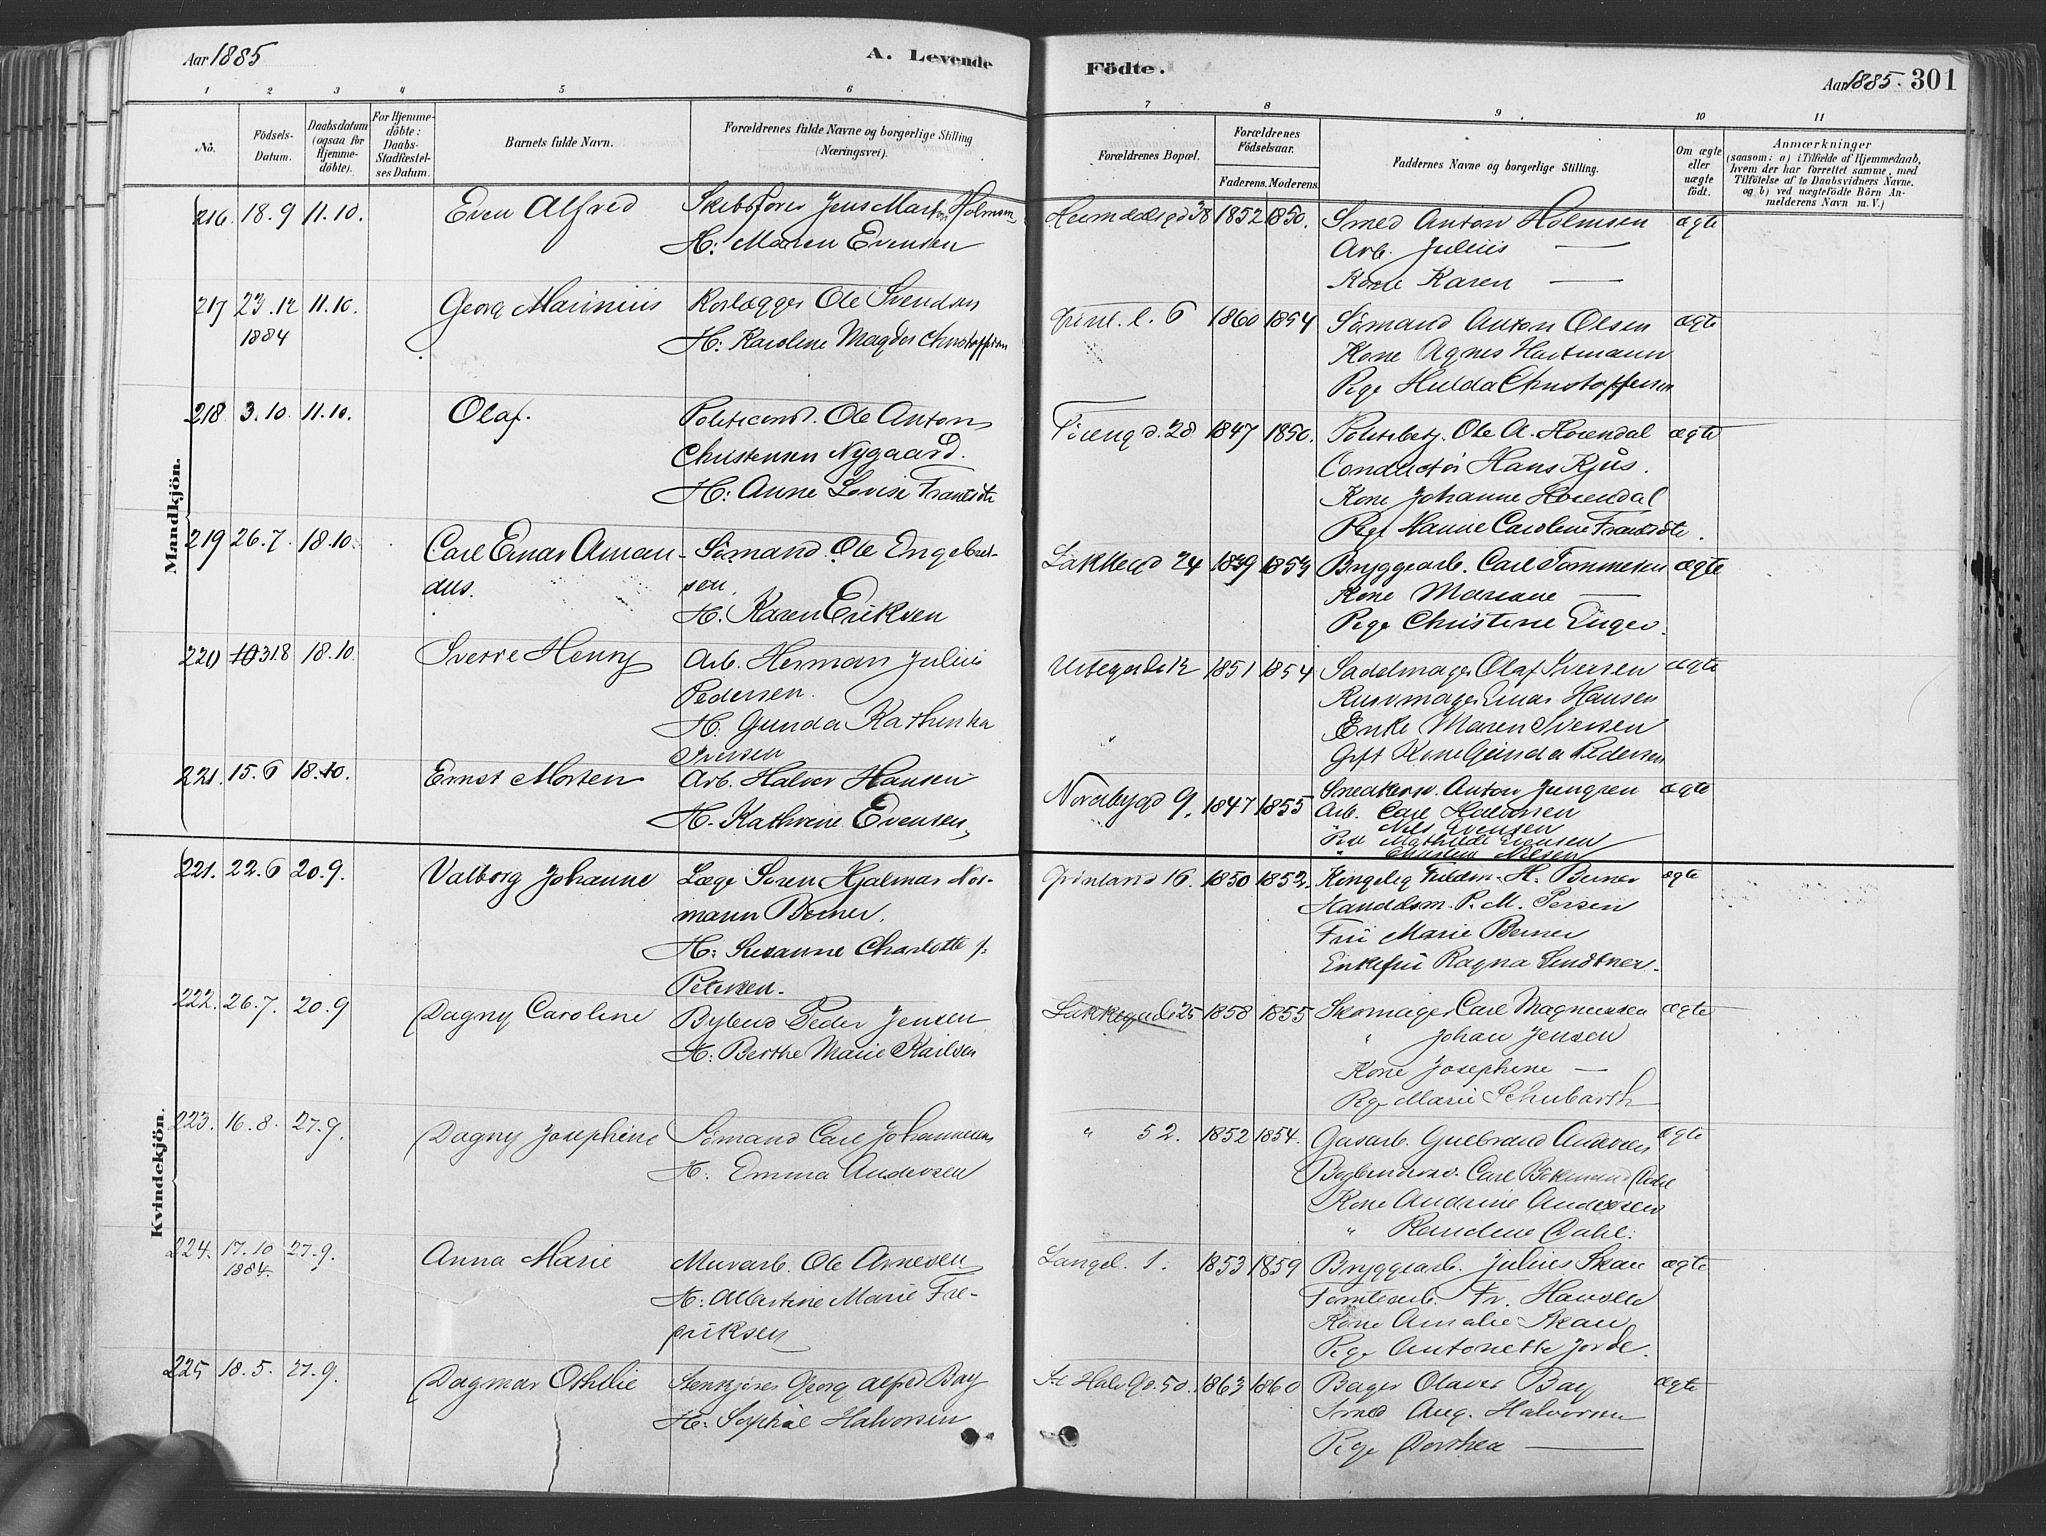 Aar 1885
A. Levende
Födte.
Aar 1885. 301
1 2 3 4 5 6 7 8 9 10 11
No.
Födsels-Datum.
Daabsdatum (ogsaa for Hjemme-döbte).
For Hjemme-döbte: Daabs-Stadfæstel-ses Datum.
Barnets fulde Navn.
Forældrenes fulde Navne og borgerlige Stilling (Næringsvei).
Forældrenes Bopæl.
Forældrenes Födselsaar.
Faderens. Moderens.
Faddernes Navne og borgerlige Stilling.
Om ægte eller uægte födt.
Anmærkninger
(saasom: a) i Tilfælde af Hjemmedaab, hvem der har forrettet samme, med Tilföielse af to Daabsvidners Navne, og b) ved uægtefödte Börn An-melderens Navn m. V.)
Mandkjön.
216. 18.9 11.10. Even Alfred Skibsfører Jens Martin Holmsen Heimdalsgd 38 1852 1850. Smed Anton Holmsen ægte
H: Maren Evensen Arb. Julius —
Kone Karen —
217 23.12 11.10. Georg Marinius Rørlægger Ole Svendsen Grønl. l. 6 1860 1854 Sømand Anton Olsen ægte
1884 H: Karoline Magda Christoffersen Kone Agnes Hartmann
Pige Hulda Christoffersen
218 3.10. 11.10. Olaf. Politiconst. Ole Anton 1847 1850. Politibetj. Ole A. Horendal ægte
Christensen Nygaard. Conductør Hans Kjus.
H: Anne Lovise Frantsdt Kone Johanne Horendal
Pige Hanne Caroline Frantsdt.
219 26.7. 18.10. Carl Einar Aman- Sømand Ole Engebret- Lakkegd 24 1839 1853 Bryggearb. Carl Tommesen ægte
dus. sen, Kone Mariane —
H. Karen Eriksen Pige Christine Enger.
220 10 31.8 18.10. Sverre Henry Arb. Herman Julius Urtegaden 1851 1854 Sadelmager Olaf Iversen ægte
Pedersen. Kurvmager Einar Hansen
H. Gunda Kathinka Enke Maren Iversen
Iversen Gift Kone Gunda Pedersen
221. 15.6 18.10. Ernst Morten Arb. Halvor Hansen Nordbygd 9. 1847 1855 Snedkersv. Anton Jungren ægte
H. Kathrine Evensen, Arb. Carl Halvorsen
" Nils Evensen
Pige Mathilde Evensen
" Christine Nilsen
Kvindekjön.
221. 22.6 20.9. Valborg Johanne Læge Søren Hjalmar Nor- Grönland 16. 1850 1852 Kongelig Fuldm. H. Berner ægte
mann Berner. Handelsm. P. M. Persen
H: Susanne Charlotte f: Fru Marie Berner
Petersen. Enkefru Ragna Sendtner.
222. 26.7. 20.9 Dagny Caroline Bybud Peder Jensen Lakkegade 25 1858 1855 Skomager Carl Magnussen ægte
H: Berthe Marie Karlsen " Johan Jensen
Kone Josephine —
Pige Marie Schubarth
223. 16.8. 27.9. Dagny Josephine Sømand Carl Johannesen " 52. 1852 1854. Gasarb. Gulbrand Andersen ægte
H: Emma Andersen Carl Dahl
Kone Andrine Andersen
" Dahl.
224. 17.10 27.9. Anna Marie Murarb. Ole Arnesen Langel. 1. 1853 1859 Bryggearb. Julius Skau ægte
1884. H: Albertine Marie Fre- Tomtearb. Fr. Hansen
driksen Kone Amalie Skau
Pige Antonette Jorde.
225 18.5. 27.9. Dagmar Othilie Stenkjører Georg Alfred Bay St. Halv. Gd. 50. 1863 1860 Bager Olaves Bay ægte
H: Sophie Halvorsen Smed Aug. Halvorsen
Pige Dorthea —